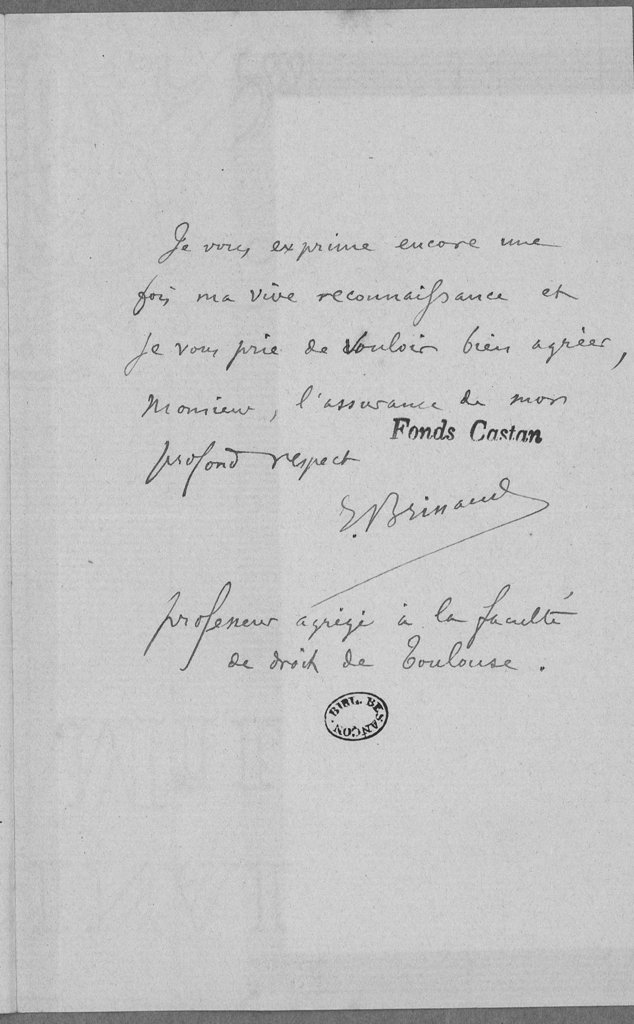 Je vous exprime encore une
fois ma vive reconnaissance et
je vous prie de vouloir bien agréer,
Monsieur, l'assurance de mon
Fonds Castan
profond respect
E. Brissaud
professeur agrégé à la faculté
de droit de Toulouse.
BIBL. BESANÇON